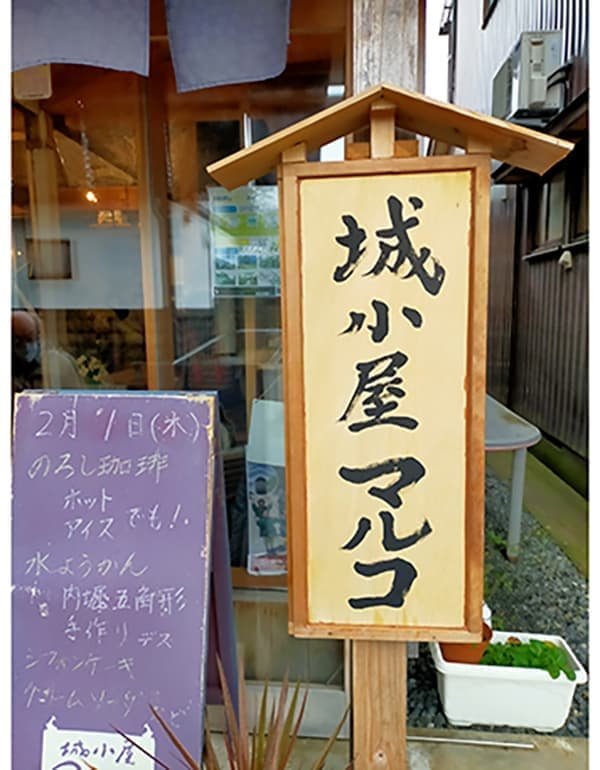 城小屋マルコ
2月1日(水)
のろし珈琲
ホット
アイス でも!.
水ようかん
内堀五角形
手作りデス
シフォンケーキ
クリームソーダ など
城小屋